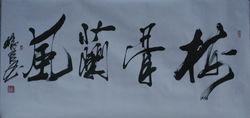 梅骨蘭風